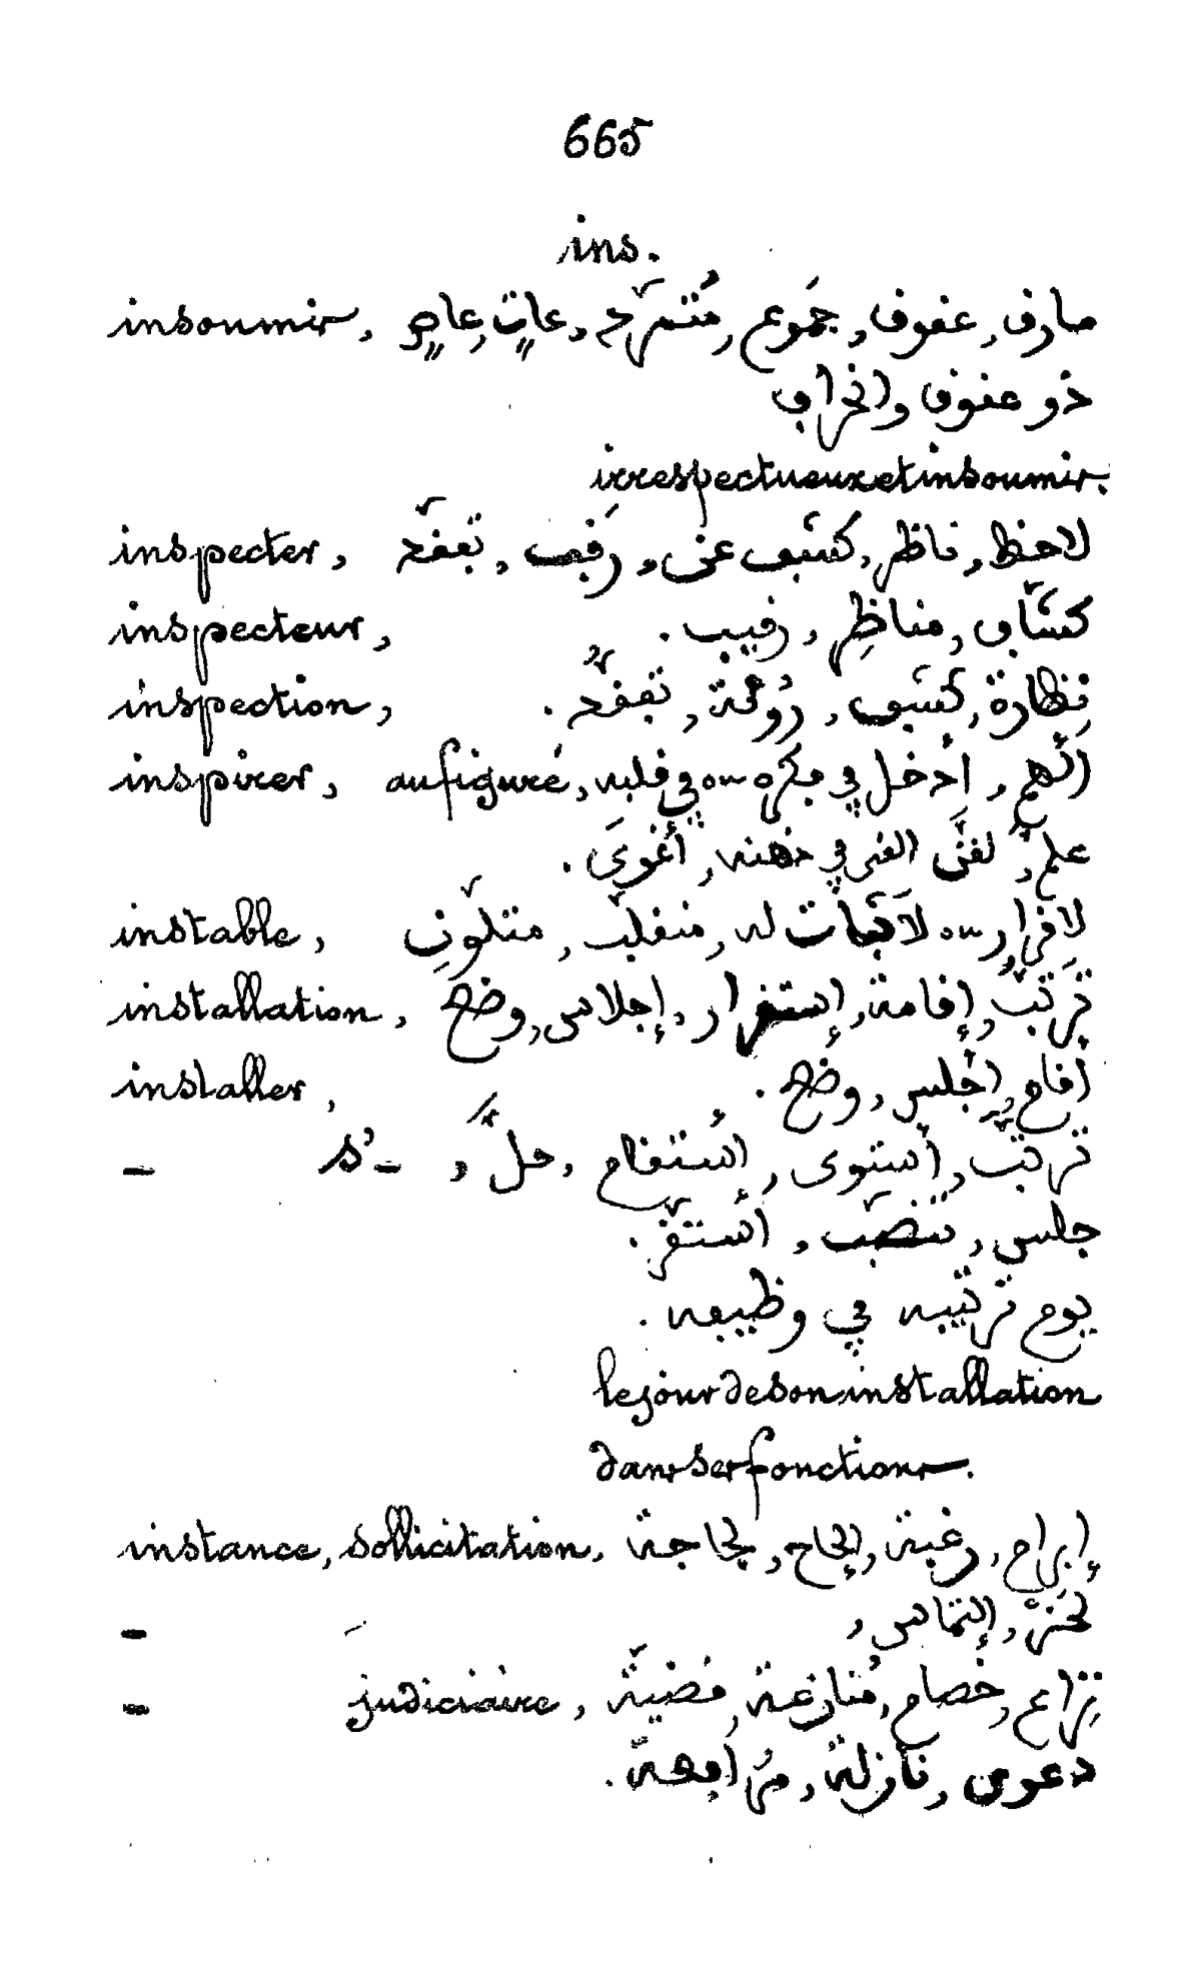 665
ins.
insoumis, مارق, عقوق, جموع, مُتَمَرِّد, عاتٍ, عاصٍ
ذو عقوق وانحراف
irrespectueux et insoumis.
inspecter, لاحظ, ناظر, كشف عن, رقب, تفقّد
inspecteur, كشّاف, مناظِر, رقيب.
inspection, نِظارة, كشف, رُؤية, تفقُّد.
inspirer, au figuré, ألهم, أدخل في فكره ou في قلبه
علّم, لقّن, ألقى في ذهنه, أغوى.
instable, لا قرار ou لا ثبات له, متقلّب, متلوّن
installation, ترتُّب, إقامة, إستقرار, إجلاس, وضع
installer, أقام, أجلس, وضع.
— s'—, ترتّب, أستوى, إستقام, حلّ
جلس, تنصّب, أستقرّ.
يوم ترتيبه في وظيفه.
le jour de son installation
dans ses fonctions.
instance, sollicitation, إبرام, رغبة, إلحاح, لجاجة
— إلتماس,
— judiciaire, نِزاع, خصام, مُنازعة, قضيّة
دعوى, نازلة, مرافعة.